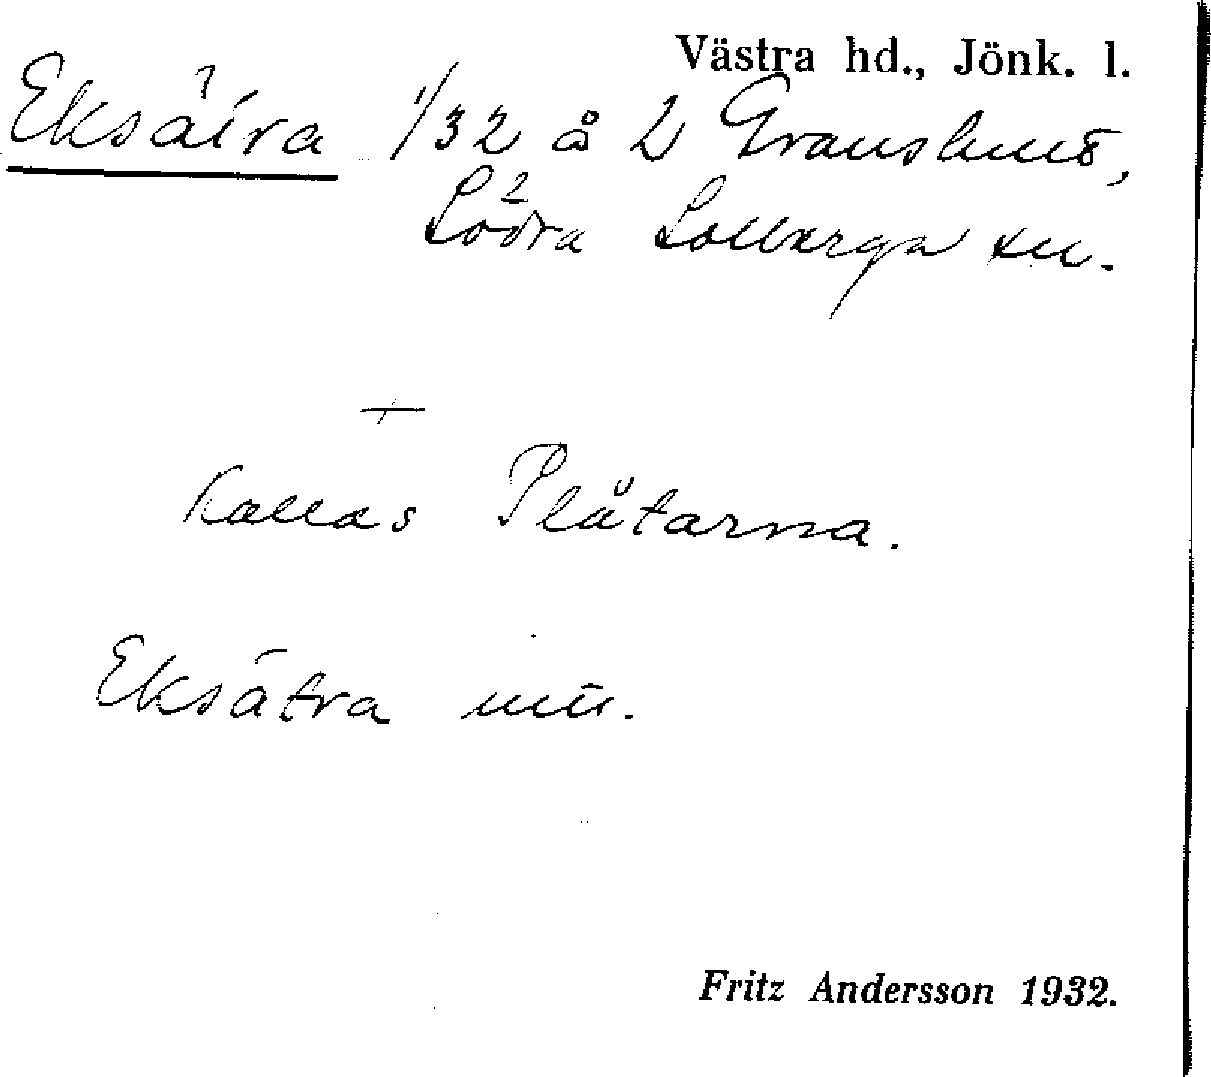 Västra hd., Jönk. l.
Eksätra 1/32 å 2 Granshult,
Södra Solberga sn.
+
Kallas Plåtarna.
Eksätra
Fritz Andersson 1932.